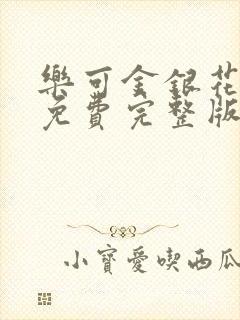 樂可金銀花
免費完整版
小寶愛喫西瓜